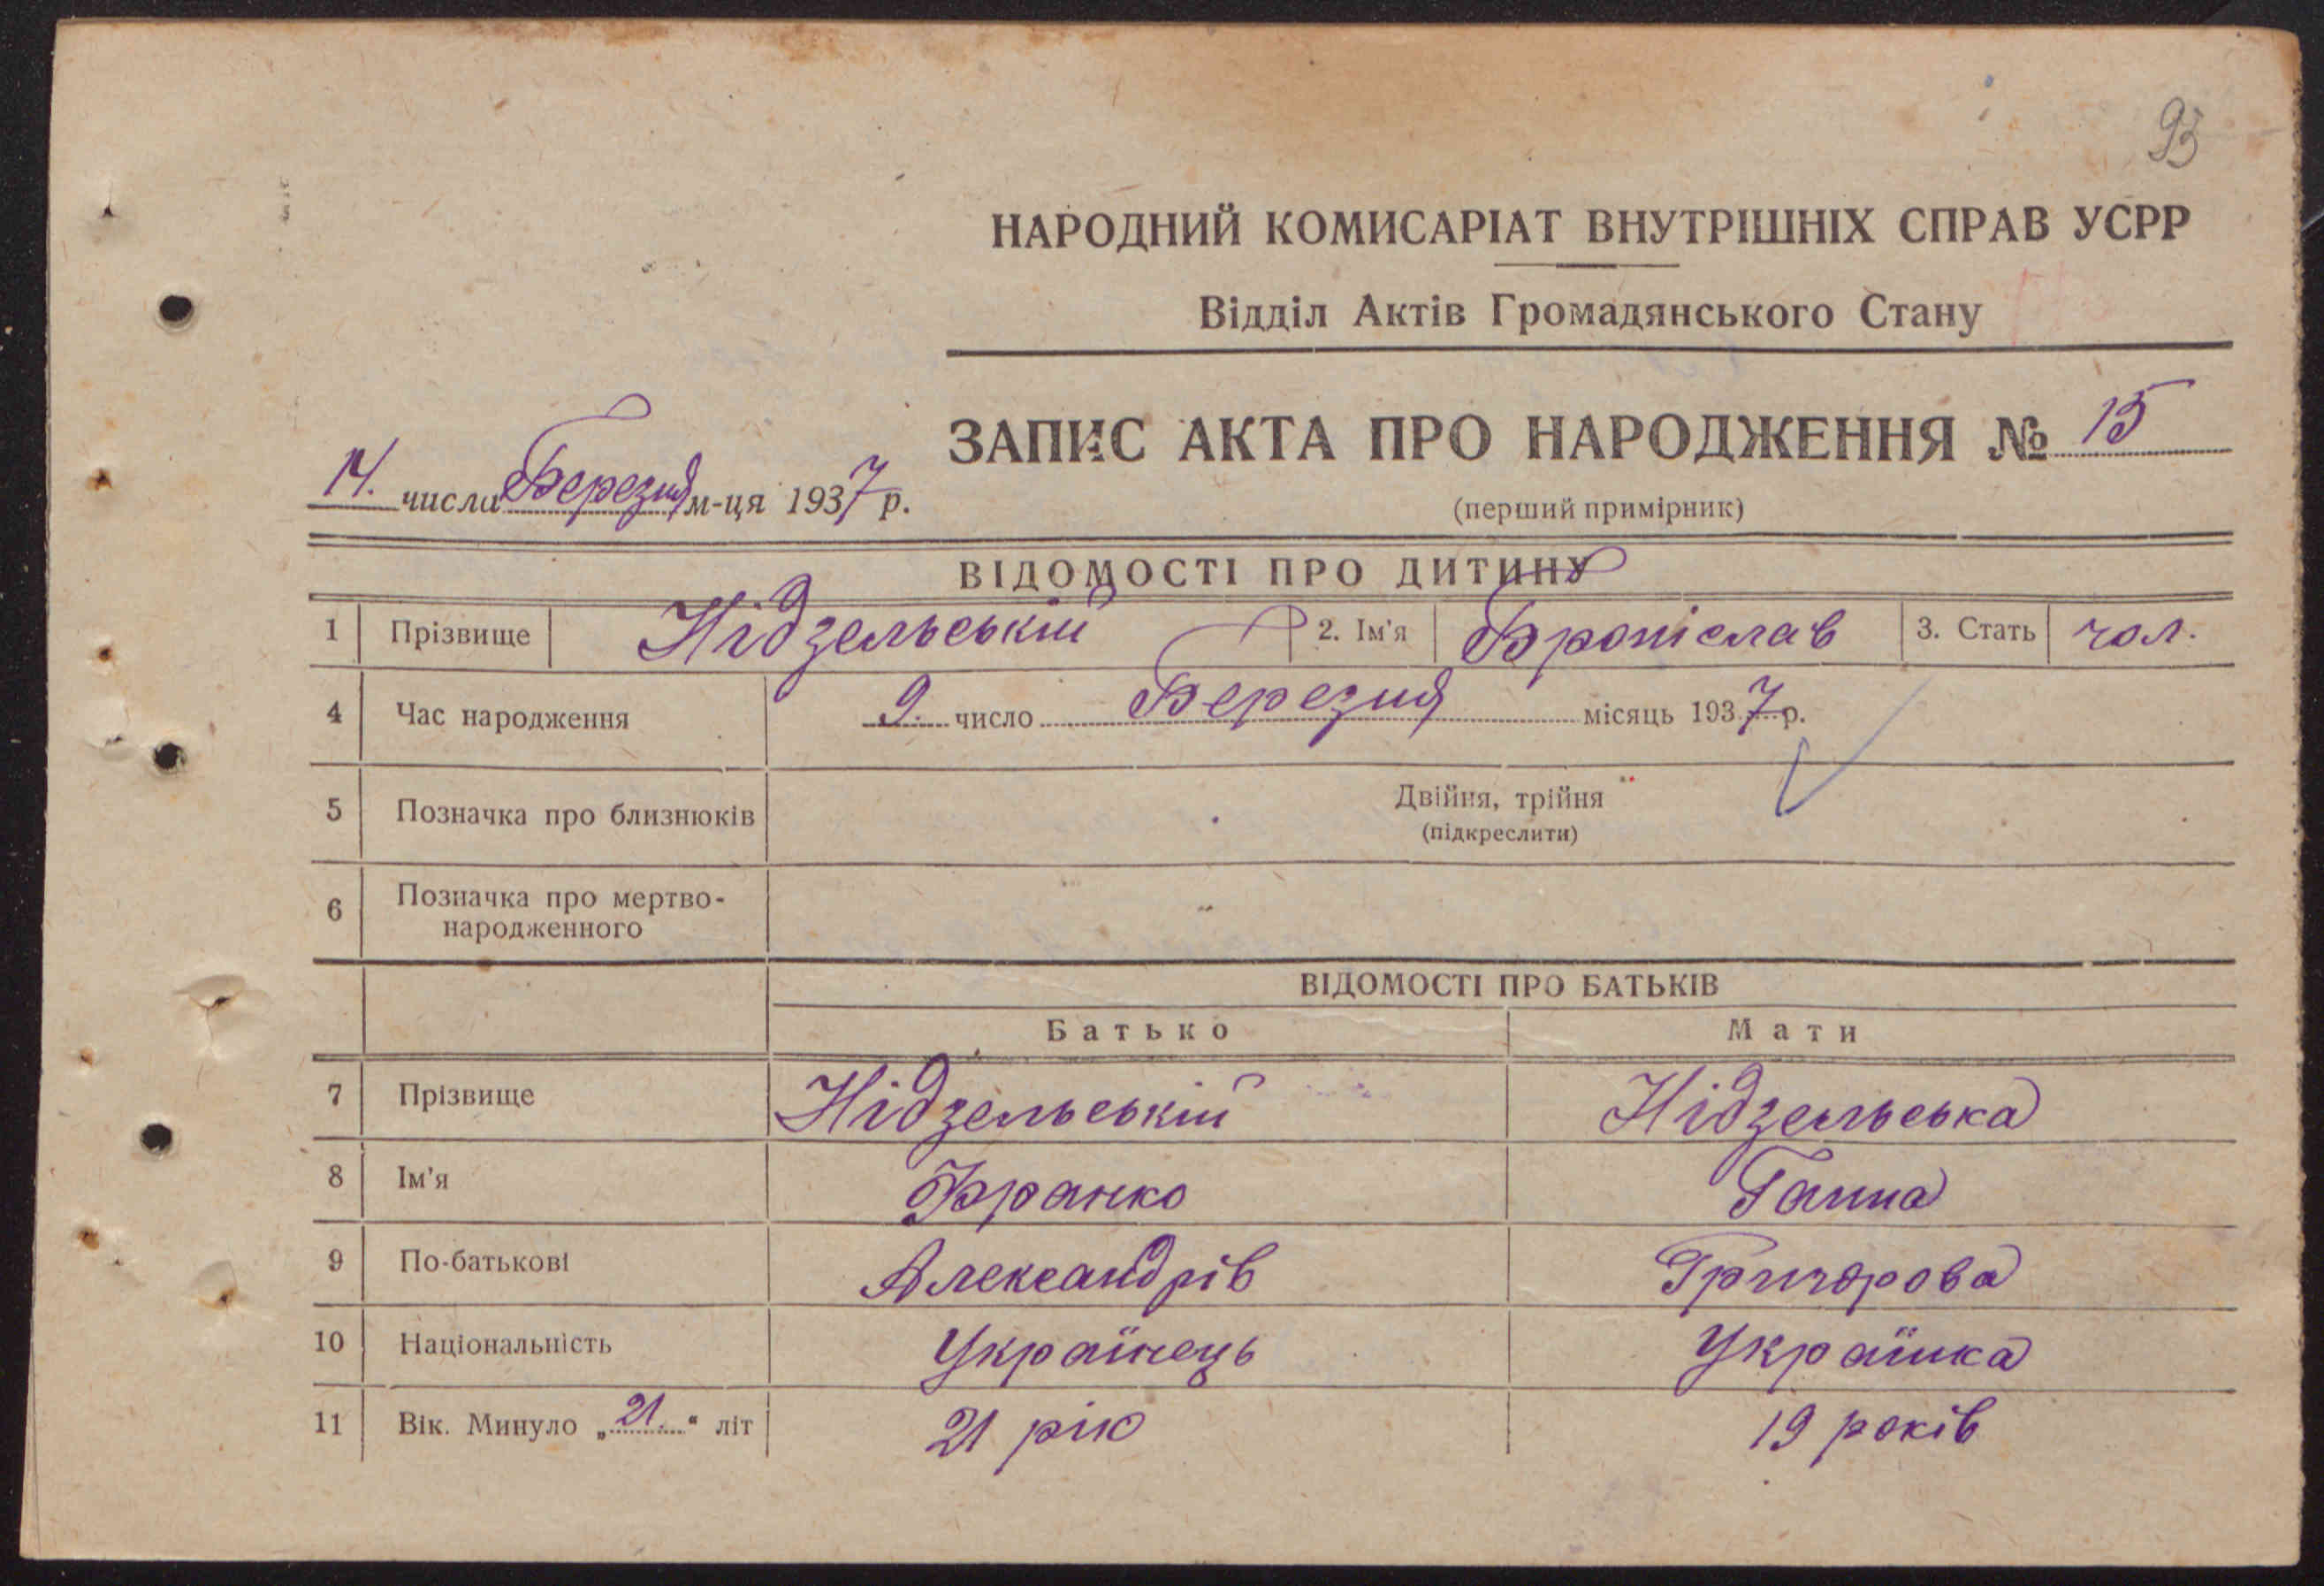 93
НАРОДНИЙ КОМИСАРІАТ ВНУТРІШНІХ СПРАВ УСРР
Відділ Актів Громадянського Стану
ЗАПИС АКТА ПРО НАРОДЖЕННЯ № 15
14. числа Березня м-ця 1937 р.
(перший примірник)
ВІДОМОСТІ ПРО ДИТИНУ
1 Прізвище Нідзельський 2. Ім'я Броніслав 3. Стать чол.
4 Час народження 9. число Березня місяць 1937 р.
5 Позначка про близнюків Двійня, трійня
(підкреслити)
6 Позначка про мертво-
народженного
ВІДОМОСТІ ПРО БАТЬКІВ
Батько Мати
7 Прізвище Нідзельський Нідзельська
8 Ім'я Франко Ганна
9 По-батькові Александрів Григорова
10 Національність Українець Українка
11 Вік. Минуло „21." літ 21 рік 19 років